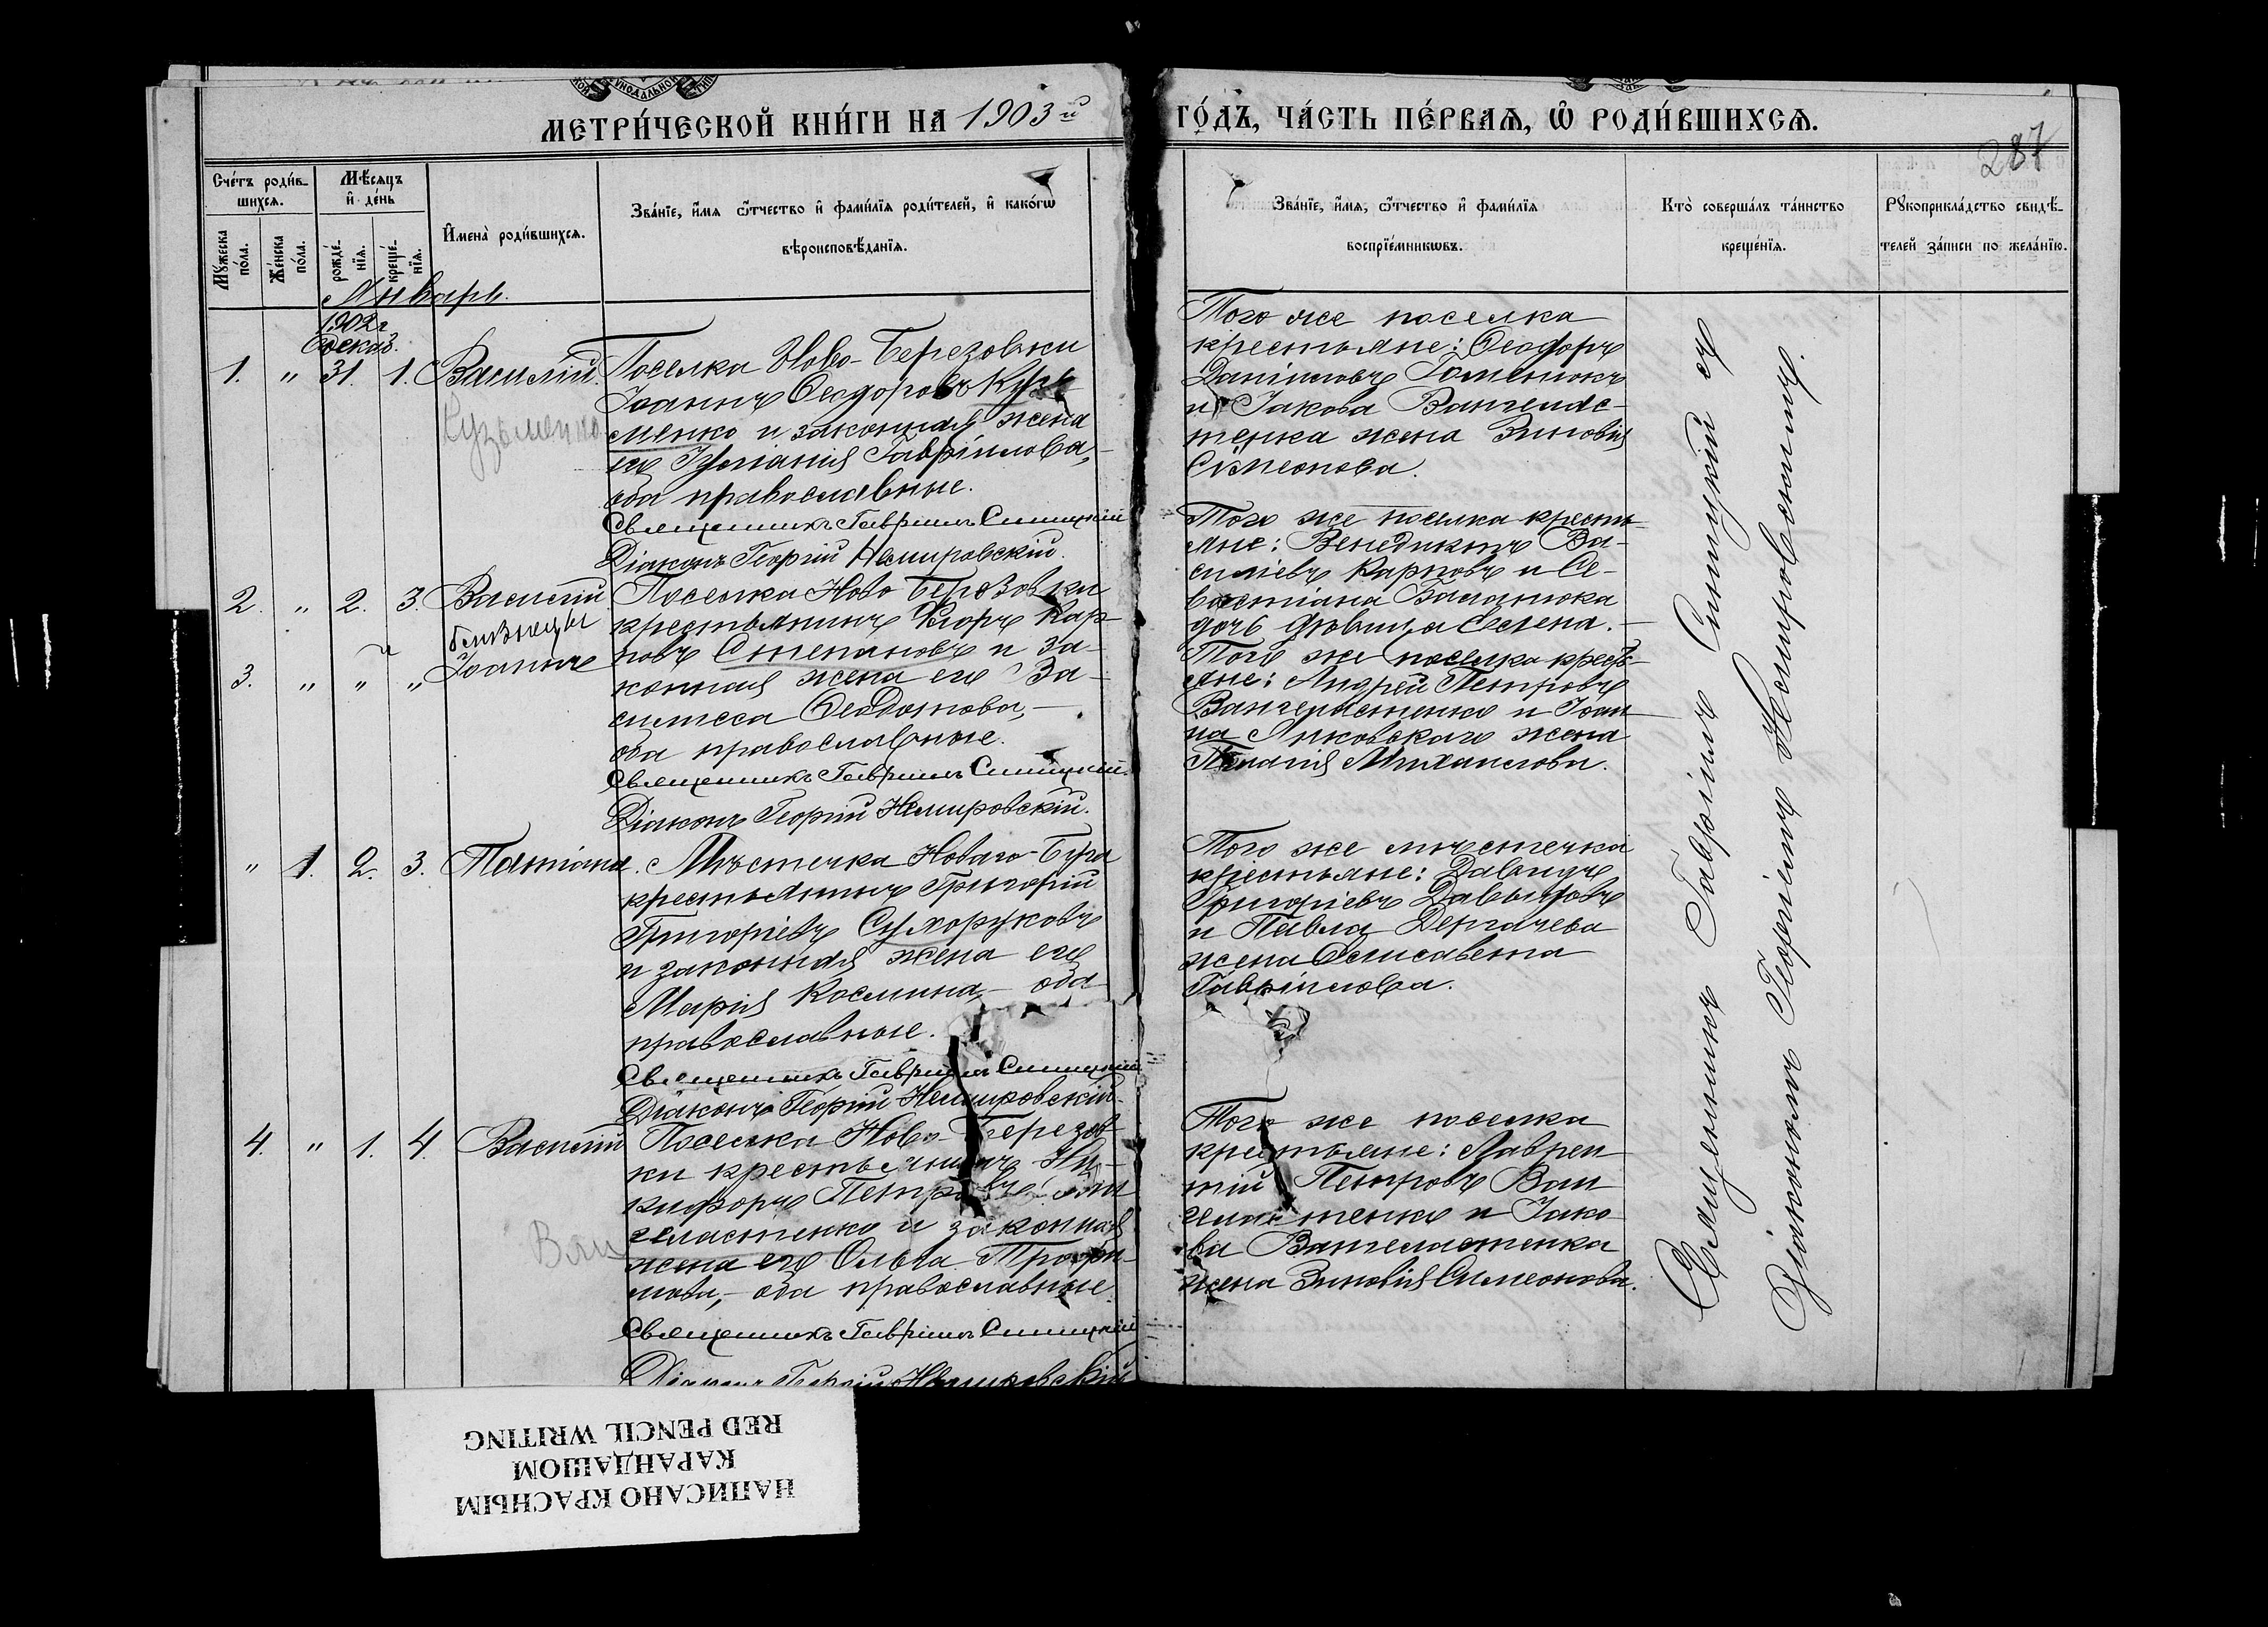 МЕТРИ́ЧЕСКОЙ КНИ́ГИ НА 1903й
ГО́ДЪ, ЧА́СТЬ ПЕ́РВАѦ, Ѡ҆ РОДИ́ВШИХСѦ.
287
Сче́тъ роди́в-
шихсѧ.
Мꙋ́жеска
по́ла.
Же́нска
по́ла.
Мѣ́сѧцъ
и҆ де́нь
рожде́-
нїѧ.
креще́-
нїѧ.
И҆мена̀ роди́вшихсѧ.
Зва́нїе, и҆́мѧ ѻ҆́тчество и҆ фами́лїѧ роди́телей, и҆ како́гѡ
вѣроисповѣ́данїѧ.
Зва́нїе, и҆́мѧ, ѻ҆́тчество и҆ фами́лїѧ
воспрїе́мникѡвъ.
Кто̀ соверша́лъ та́инство
креще́нїѧ.
Рꙋкоприкла́дство свидѣ́-
телей за́писи по жела́нїю.
Январь.
1902г
Декаб.
1. " 31. 1. Василій.
Кузьменко
Поселка Ново-Березовки
Іоаннъ Ѳеодоровъ Кузь
менко и законная жена
его Іуліанія Гавріилова,-
оба православные.
Священникъ Гавріилъ Синицкій
Діаконъ Георгій Немировскій.
Того же поселка
крестьяне: Ѳеодоръ
Даніиловъ
и Іакова Вангелас-
тенка жена Зиновія
Сімеонова.
2. " 2. 3. Василій
близнецы
3. " " " Іоаннъ
Поселка Ново Березовки
крестьянинъ Кар-
повъ Степановъ и за-
конная жена его Ва-
силисса Ѳеодотова,-
оба православные.
Священникъ Гавріилъ Синицкій.
Діаконъ Георгій Немировскій.
Того же поселка кресть-
яне: Венедиктъ Ва-
силіевъ Карповъ и Се-
вастіана
дочь дѣвица Елена.
Того же поселка кресть-
яне: Андрей Петровъ
Вангеластенко и Іоан-
на Янковскаго жена
Пелагія Михаилова.
" 1. 2. 3. Татіана.
Мѣстечка Новаго-Буга
крестьянинъ Григорій
Григоріевъ Сухоруковъ
и законная жена его
Марія Космина,- оба
православные.
Священникъ Гавріилъ Синицкій
Діаконъ Георгій Немировскій.
Того же мѣстечка
крестьяне: Давидъ
Григоріевъ Давыдовъ
и Павла Дергачева
жена Елисавета
Гавріилова.
4. " 1. 4. Василій
Ван
Поселка Ново-Березов-
ки крестьянинъ Ни-
кифоръ Петровъ Ван
геластенко и законная
жена его Ольга Трофи-
мова,- оба православные.
Священникъ Гавріилъ Синицкій
Діаконъ Георгій Немировскій
Того же поселка
крестьяне: Лаврен-
тій Петровъ Ван
геластенко и Іако-
ва Вангеластенка
жена Зиновія Симеонова.
Священникъ Гавріилъ Синицкій съ
Діакономъ Георгіемъ Немировскимъ.
НАПИСАНО КРАСНЫМ
КАРАНДАШОМ
RED PENCIL WRITING